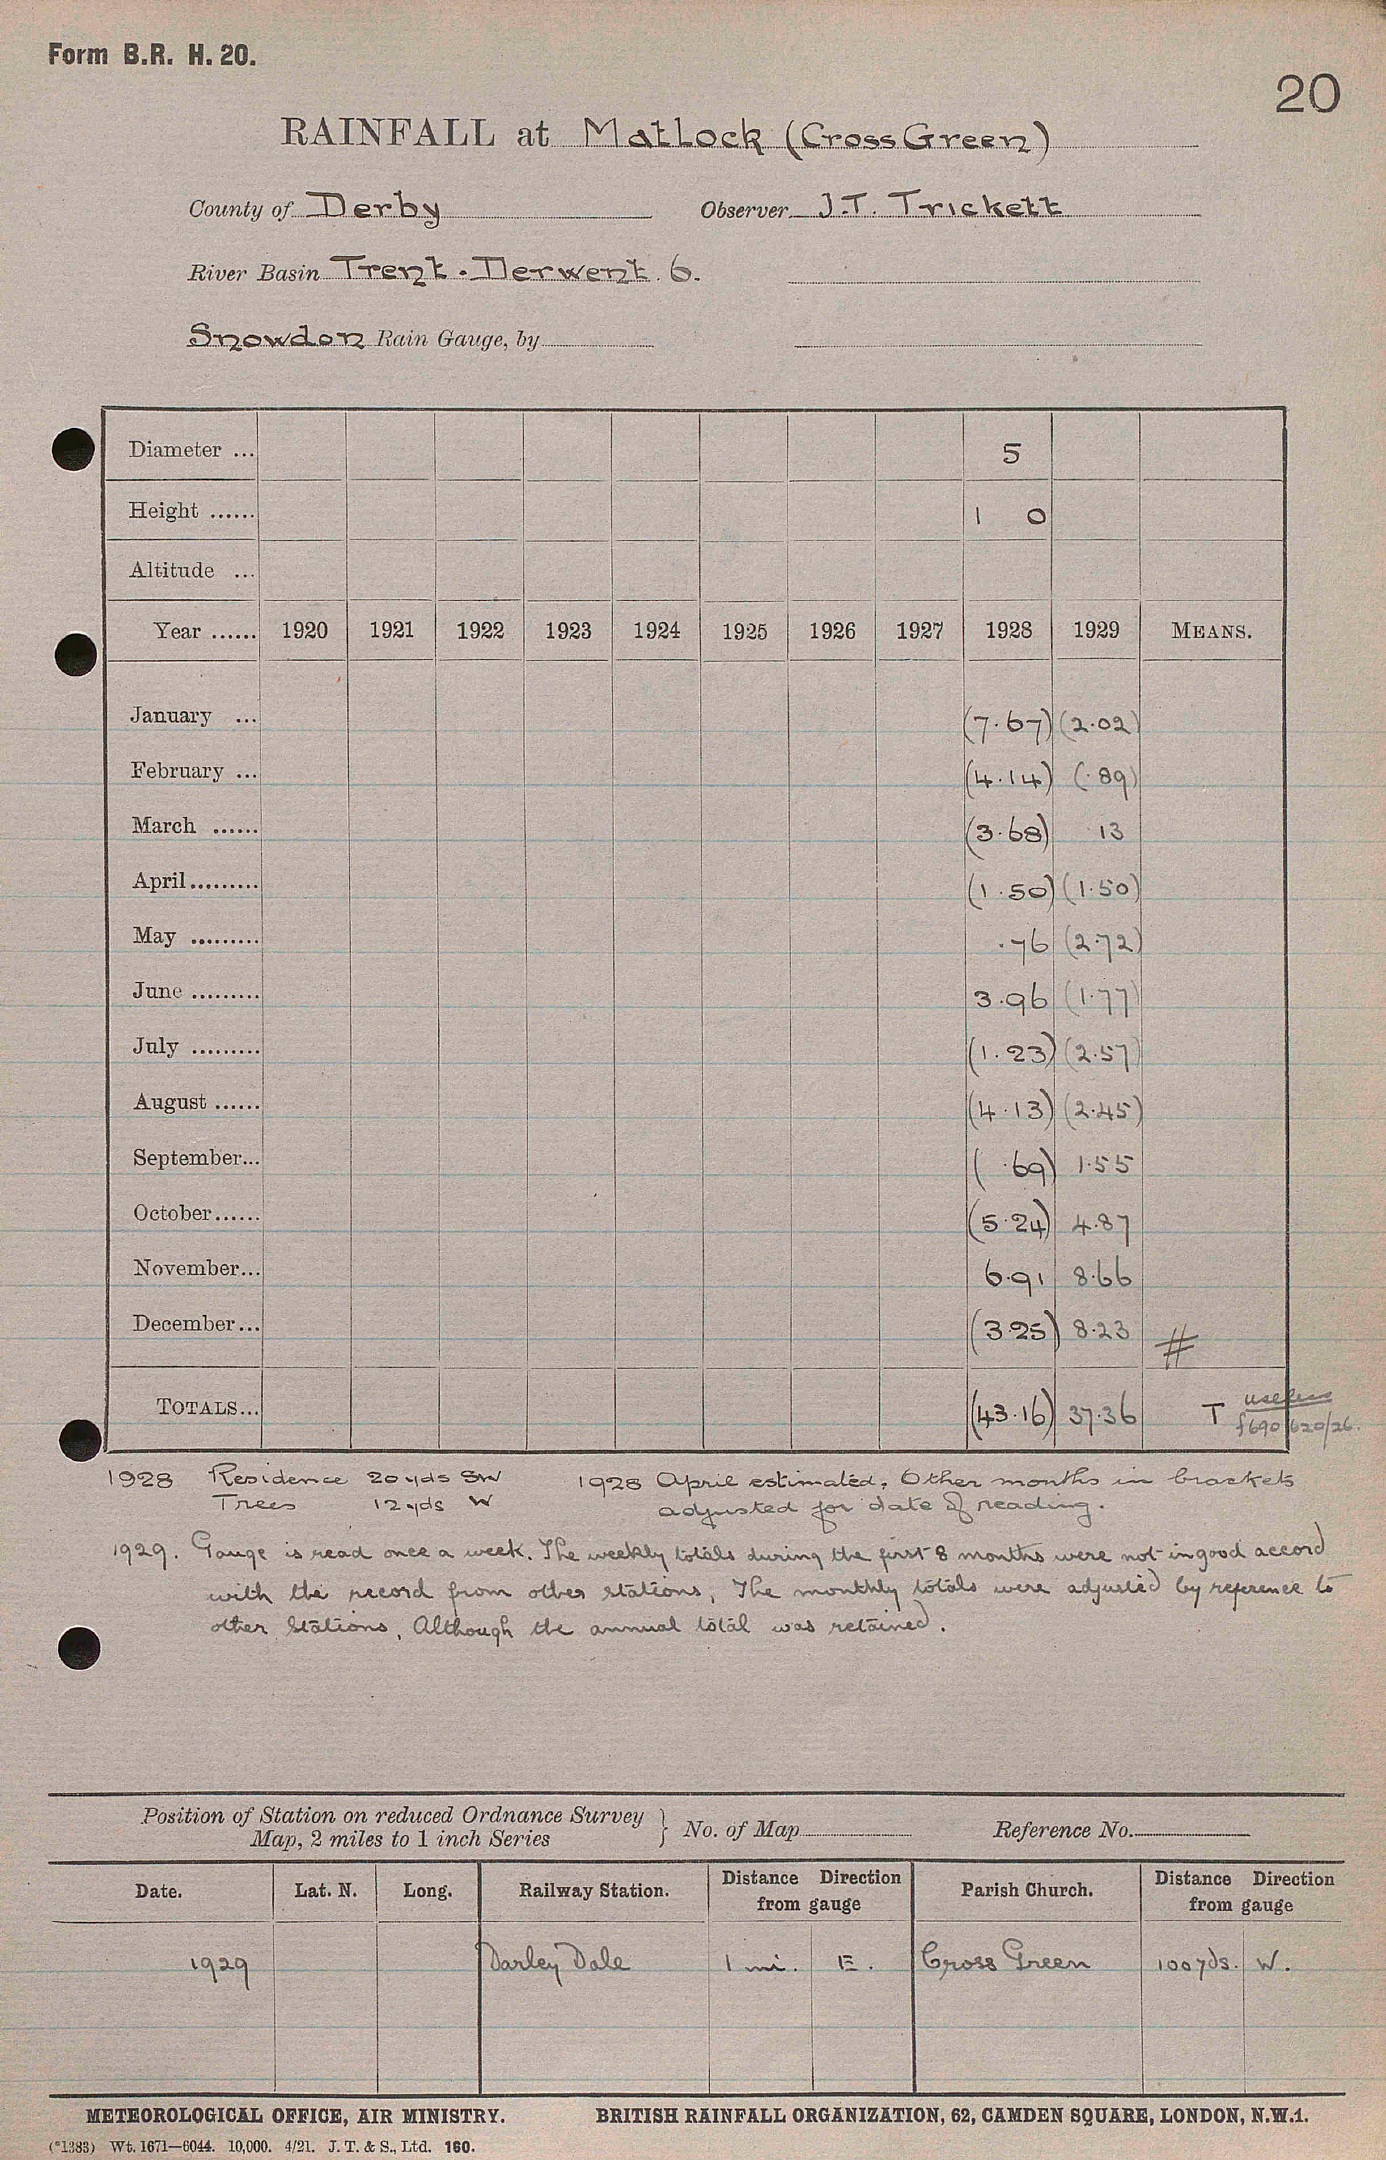 Form B.R. H. 20.
20
RAINFALL at Matlock (Cross Green)
County of Derby Observer J.T. Trickett
River Basin Trent . Derwent 6.
Snowdon Rain Gauge, by
Diameter ... 5
Height ...... 1 0
Altitude ...
Year ...... 1920 1921 1922 1923 1924 1925 1926 1927 1928 1929 MEANS.
January ... (7.67) (2.02)
February ... (4.14) (.89)
March ...... (3.68) 13
April......... (1.50) (1.50)
May ......... .76 (2.72)
June ......... 3.96 (1.77)
July ......... (1.23) (2.57)
August ...... (4.13) (2.45)
September... ( .69) 1.55
October...... (5.24) 4.87
November... 6.91 8.66
December... (3.25) 8.23 #
TOTALS... (43.16) 37.36 T useless
1928 Residence 20 yds SW 1928 April estimated. Other months in brackets
Trees 12 yds W adjusted for date of reading.
1929. Gauge is read once a week. The weekly totals during the first 8 months were not in good accord
with the record from other stations. The monthly totals were adjusted by reference to
other stations, Although the annual total was retained.
Position of Station on reduced Ordnance Survey
Map, 2 miles to 1 inch Series } No. of Map Reference No.
Date. Lat. N. Long. Railway Station. Distance Direction from gauge Parish Church. Distance Direction from gauge
1929 Darley Dale 1 mi. E. Cross Green 100 yds. W.
METEOROLOGICAL OFFICE, AIR MINISTRY. BRITISH RAINFALL ORGANIZATION, 62, CAMDEN SQUARE, LONDON, N.W.1.
(*1383) Wt. 1671—6044. 10,000. 4/21. J. T. & S., Ltd. 160.